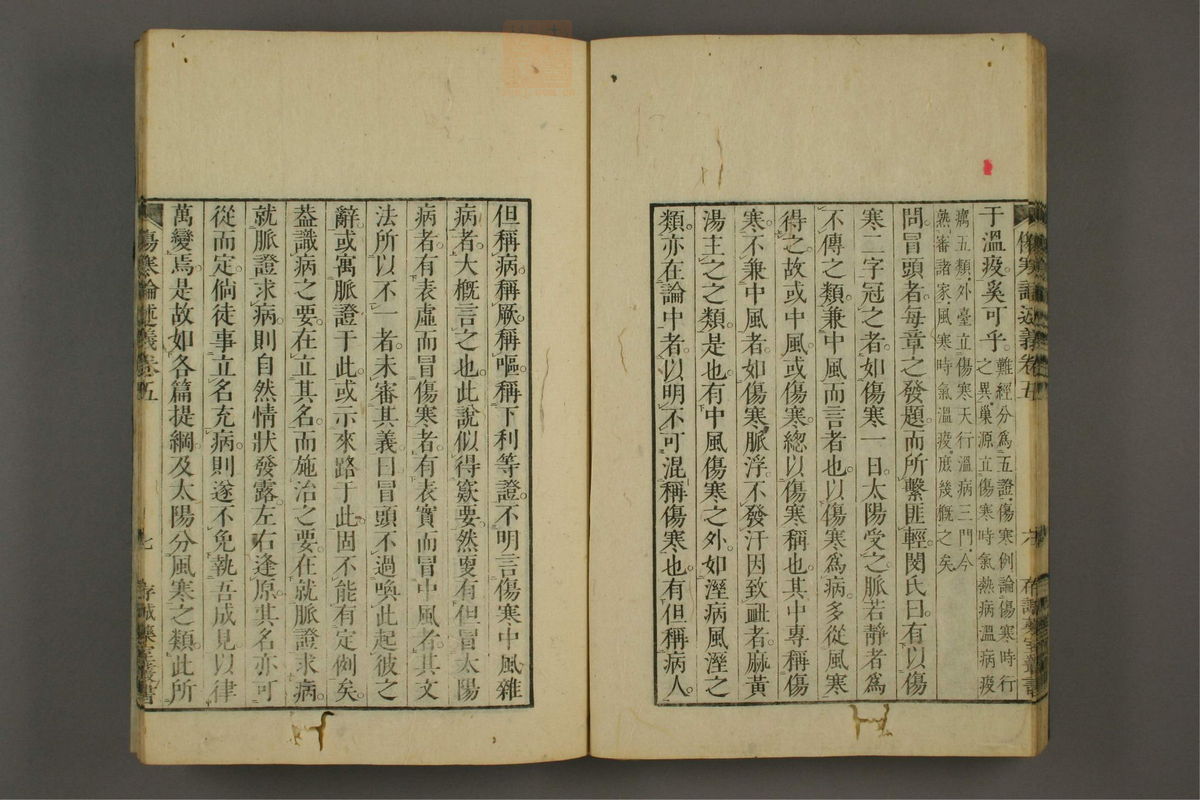 傷寒論述義卷五
于溫疫奚可乎難經分爲五證傷寒例論傷寒時行
之異巢源立傷寒時氣熱病溫病疫
癘五類外臺立傷寒天行溫病三門今
熱審諸家風寒時氣溫疫庶幾慨之矣
問冒頭者每章之發題而所繫匪輕閔氏曰有以傷
寒二字冠之者如傷寒一日太陽受之脈若靜者爲
不傳之類兼中風而言者也以傷寒爲病多從風寒
得之故或中風或傷寒總以傷寒稱也其中專稱傷
寒不兼中風者如傷寒脈浮不發汗因致衄者麻黃
湯主之之類是也有中風傷寒之外如溼病風溼之
類亦在論中者以明不可混稱傷寒也有但稱病人
六
存誠藥室叢書
但稱病稱厥稱嘔稱下利等證不明言傷寒中風雜
病者大概言之也此說似得窾要然更有但冒太陽
病者有表虛而冒傷寒者有表實而冒中風者其文
法所以不一者未審其義曰冒頭不過喚此起彼之
辭或寓脈證于此或示來路于此固不能有定例矣
葢識病之要在立其名而施治之要在就脈證求病
就脈證求病則自然情狀發露左右逢原其名亦可
從而定倘徒事立名充病則遂不免執吾成見以律
萬變焉是故如各篇提綱及太陽分風寒之類此所
傷寒論述義卷五
七
存誠藥室叢書